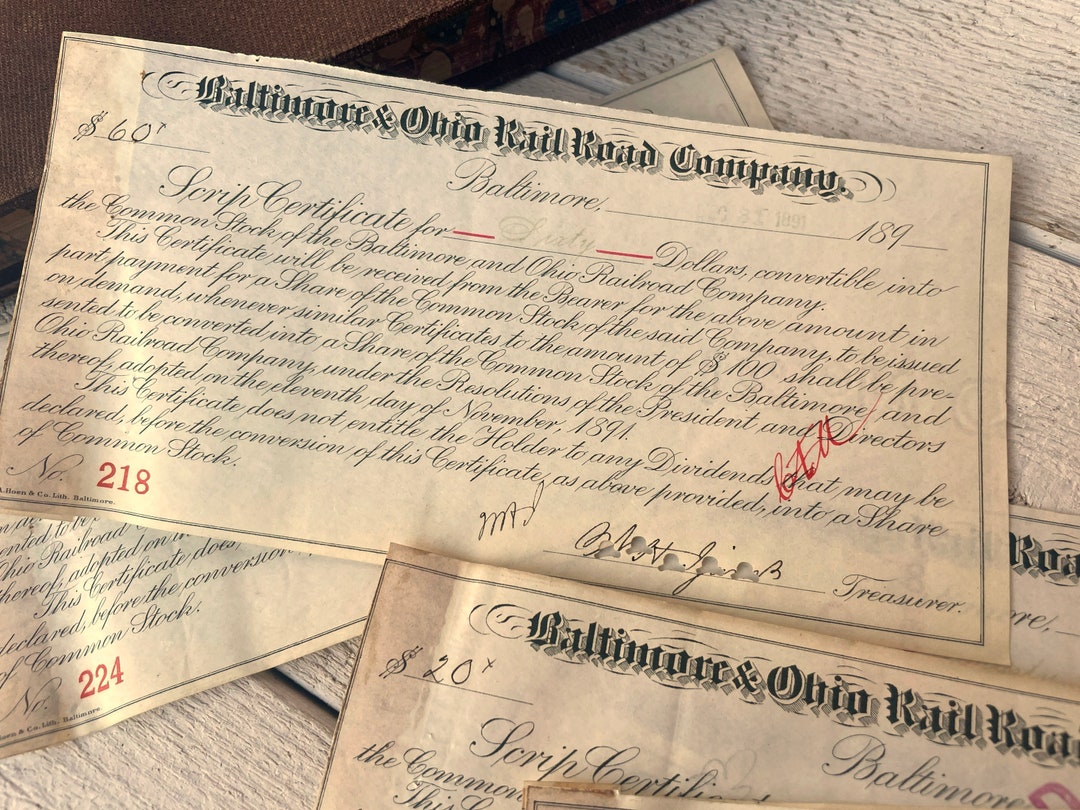 Baltimore & Ohio Rail Road Company.
$ 60
Baltimore, 31 1891 189
Scrip Certificate for Sixty Dollars, convertible into
the Common Stock of the Baltimore and Ohio Railroad Company.
This Certificate will be received from the Bearer for the above amount in
part payment for a Share of the Common Stock of the said Company, to be issued
on demand, whenever similar Certificates to the amount of $100 shall be pre-
sented to be converted into a Share of the Common Stock of the Baltimore and
Ohio Railroad Company, under the Resolutions of the President and Directors
thereof, adopted on the eleventh day of November, 1891.
This Certificate does not entitle the Holder to any Dividends that may be
declared, before the conversion of this Certificate, as above provided, into a Share
of Common Stock.
No. 218
A. Hoen & Co. Lith. Baltimore.
Treasurer.
Ohio Railroad
thereof, adopted on
This Certificate does
declared, before the conversion
of Common Stock.
No. 224
Hoen & Co. Lith. Baltimore.
Baltimore & Ohio Rail Road
$ 20
Baltimore
Scrip
the Common
This